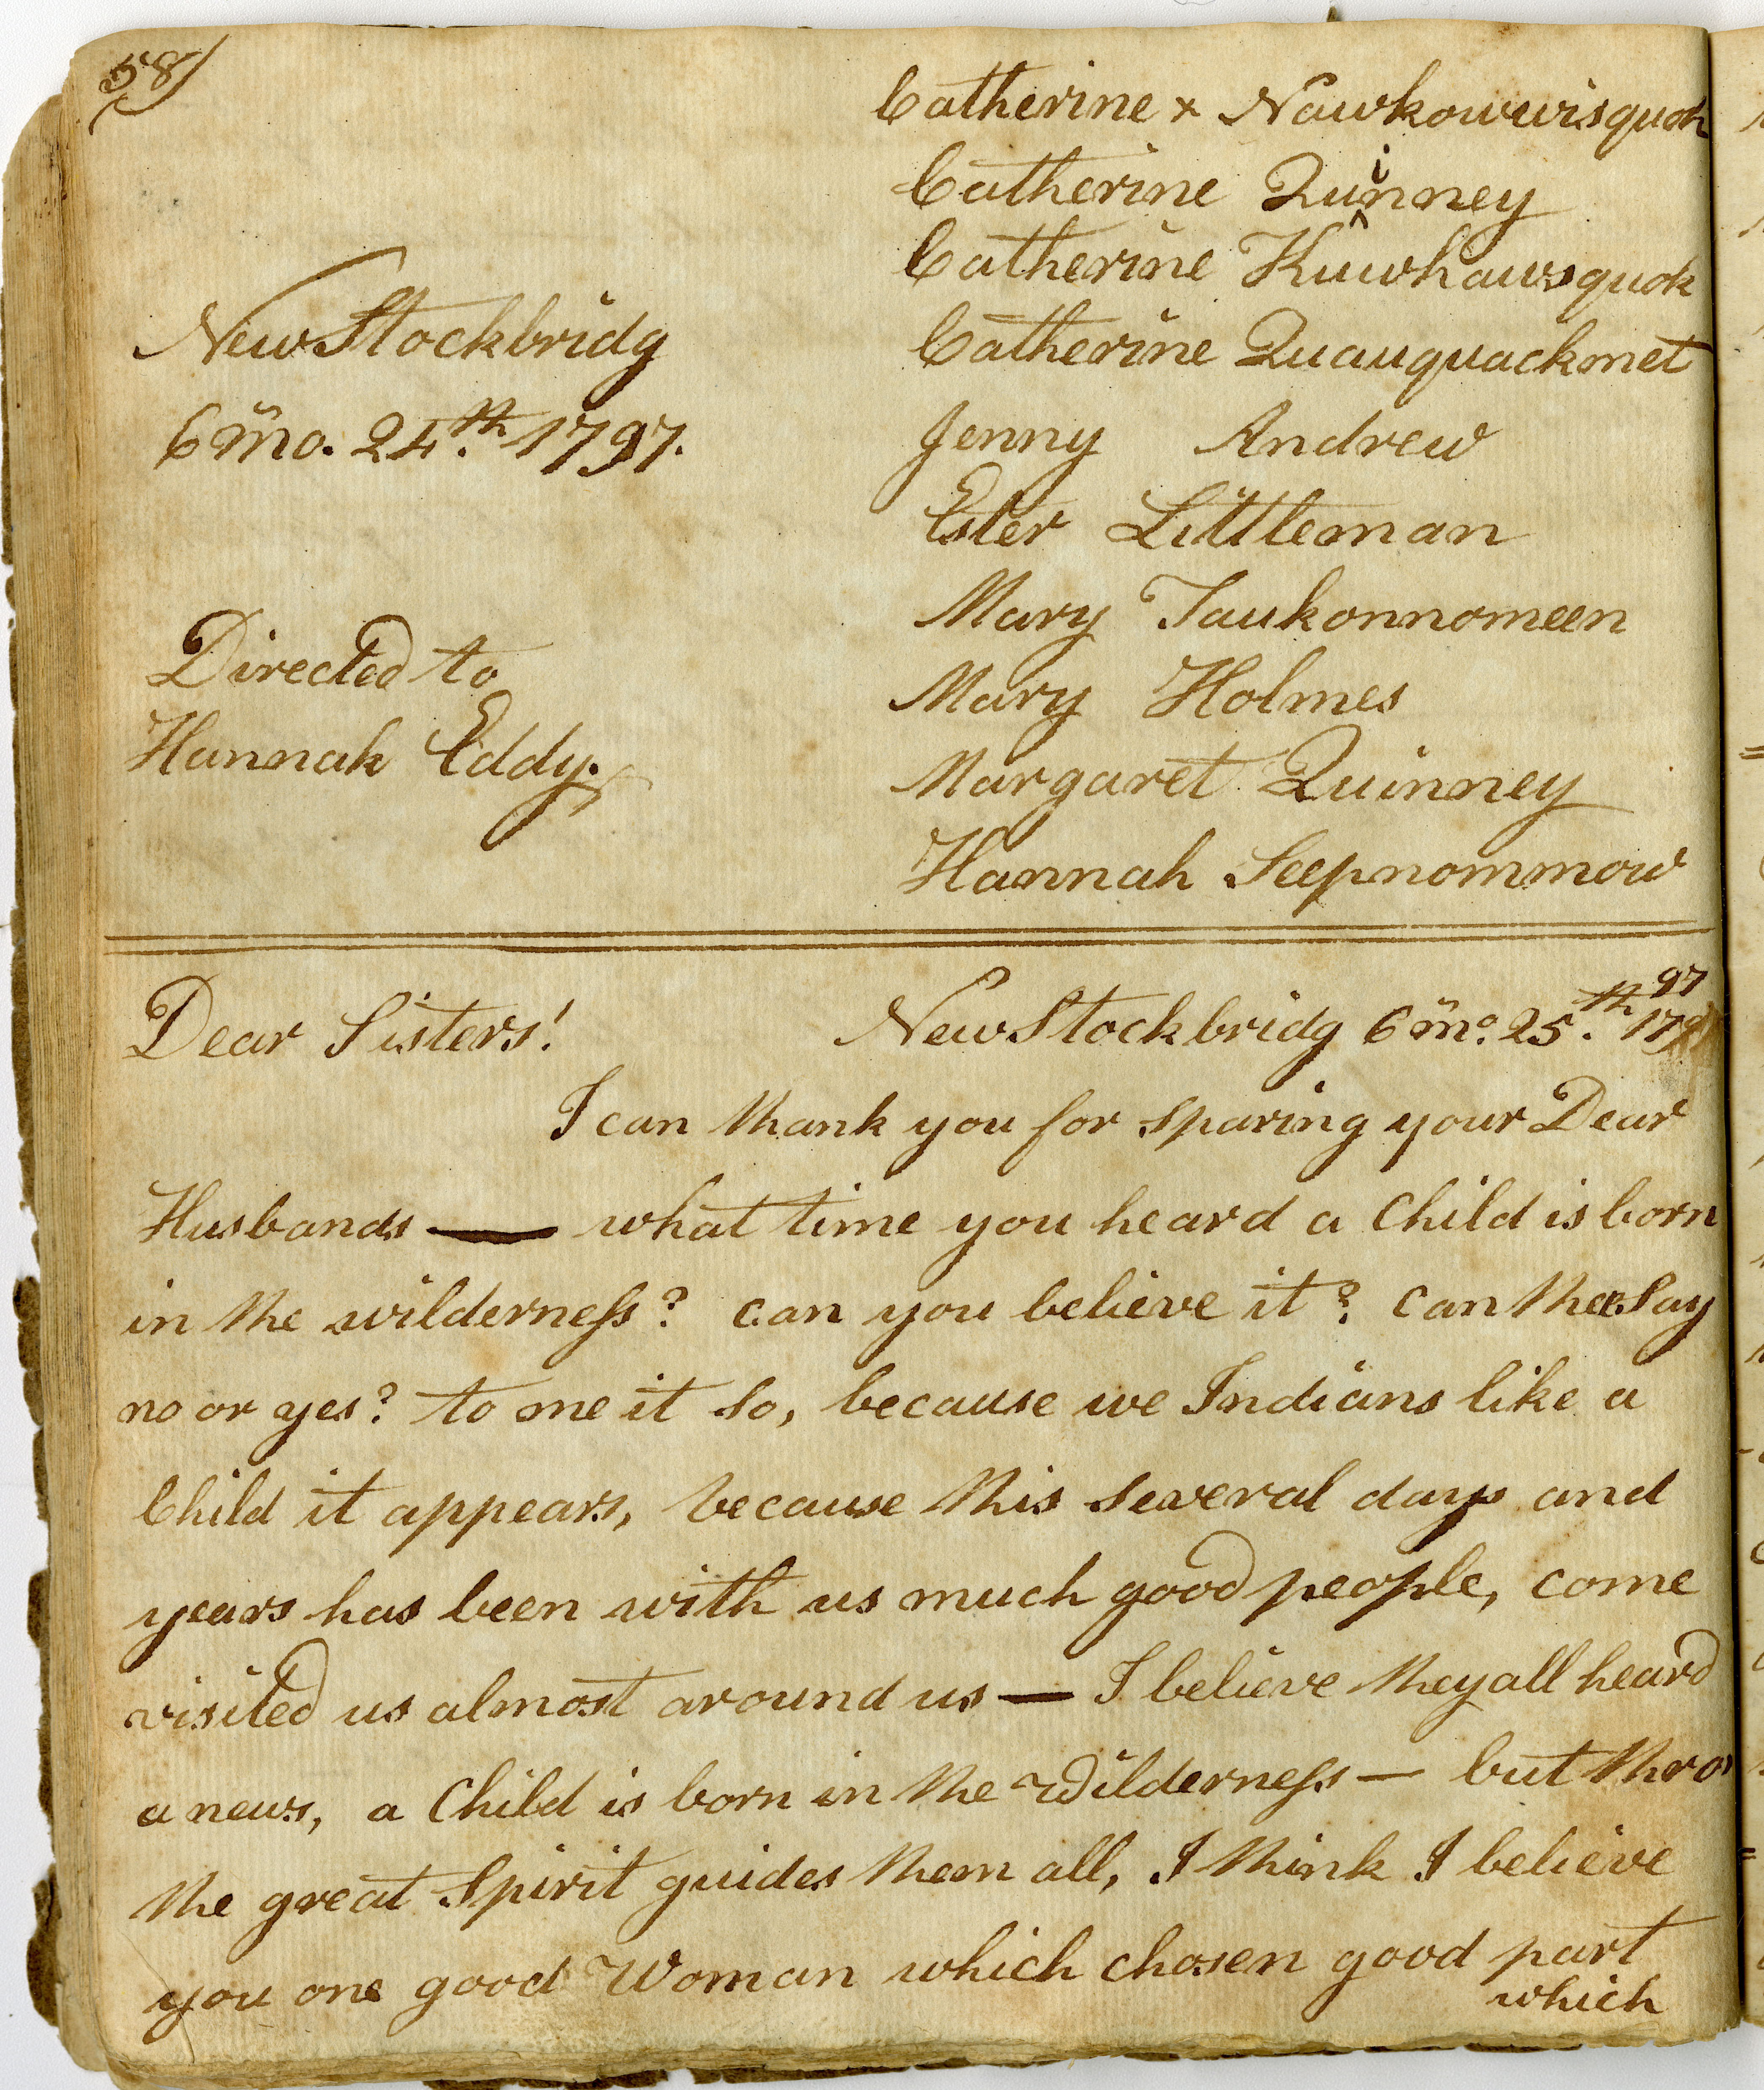 58)
Catherine × Nawkowwisquoh
Catherine Quinney
Catherine Kuwhawsquok
Catherine Quauquackmet
Jenny Andrew
Ester Littleman
Mary Taukonnomeen
Mary Holmes
Margaret Quinney
Hannah Seepnommow
New Stockbridg
6 mo. 24.th 1797.
Directed to
Hannah Eddy.
Dear Sisters! New Stockbridg 6 mo. 25.th 1797
I can thank you for sparing your Dear
Husbands — what time you heard a Child is born
in the wilderness? can you believe it? can thee say
no or yes? to me it so, because we Indians like a
Child it appears, because this several days and
years has been with us much good people, come
visited us almost around us — I believe they all heard
a news, a Child is born in the Wilderness — but thro'
the great Spirit guides them all, I think I believe
you one good Woman which chosen good part
which